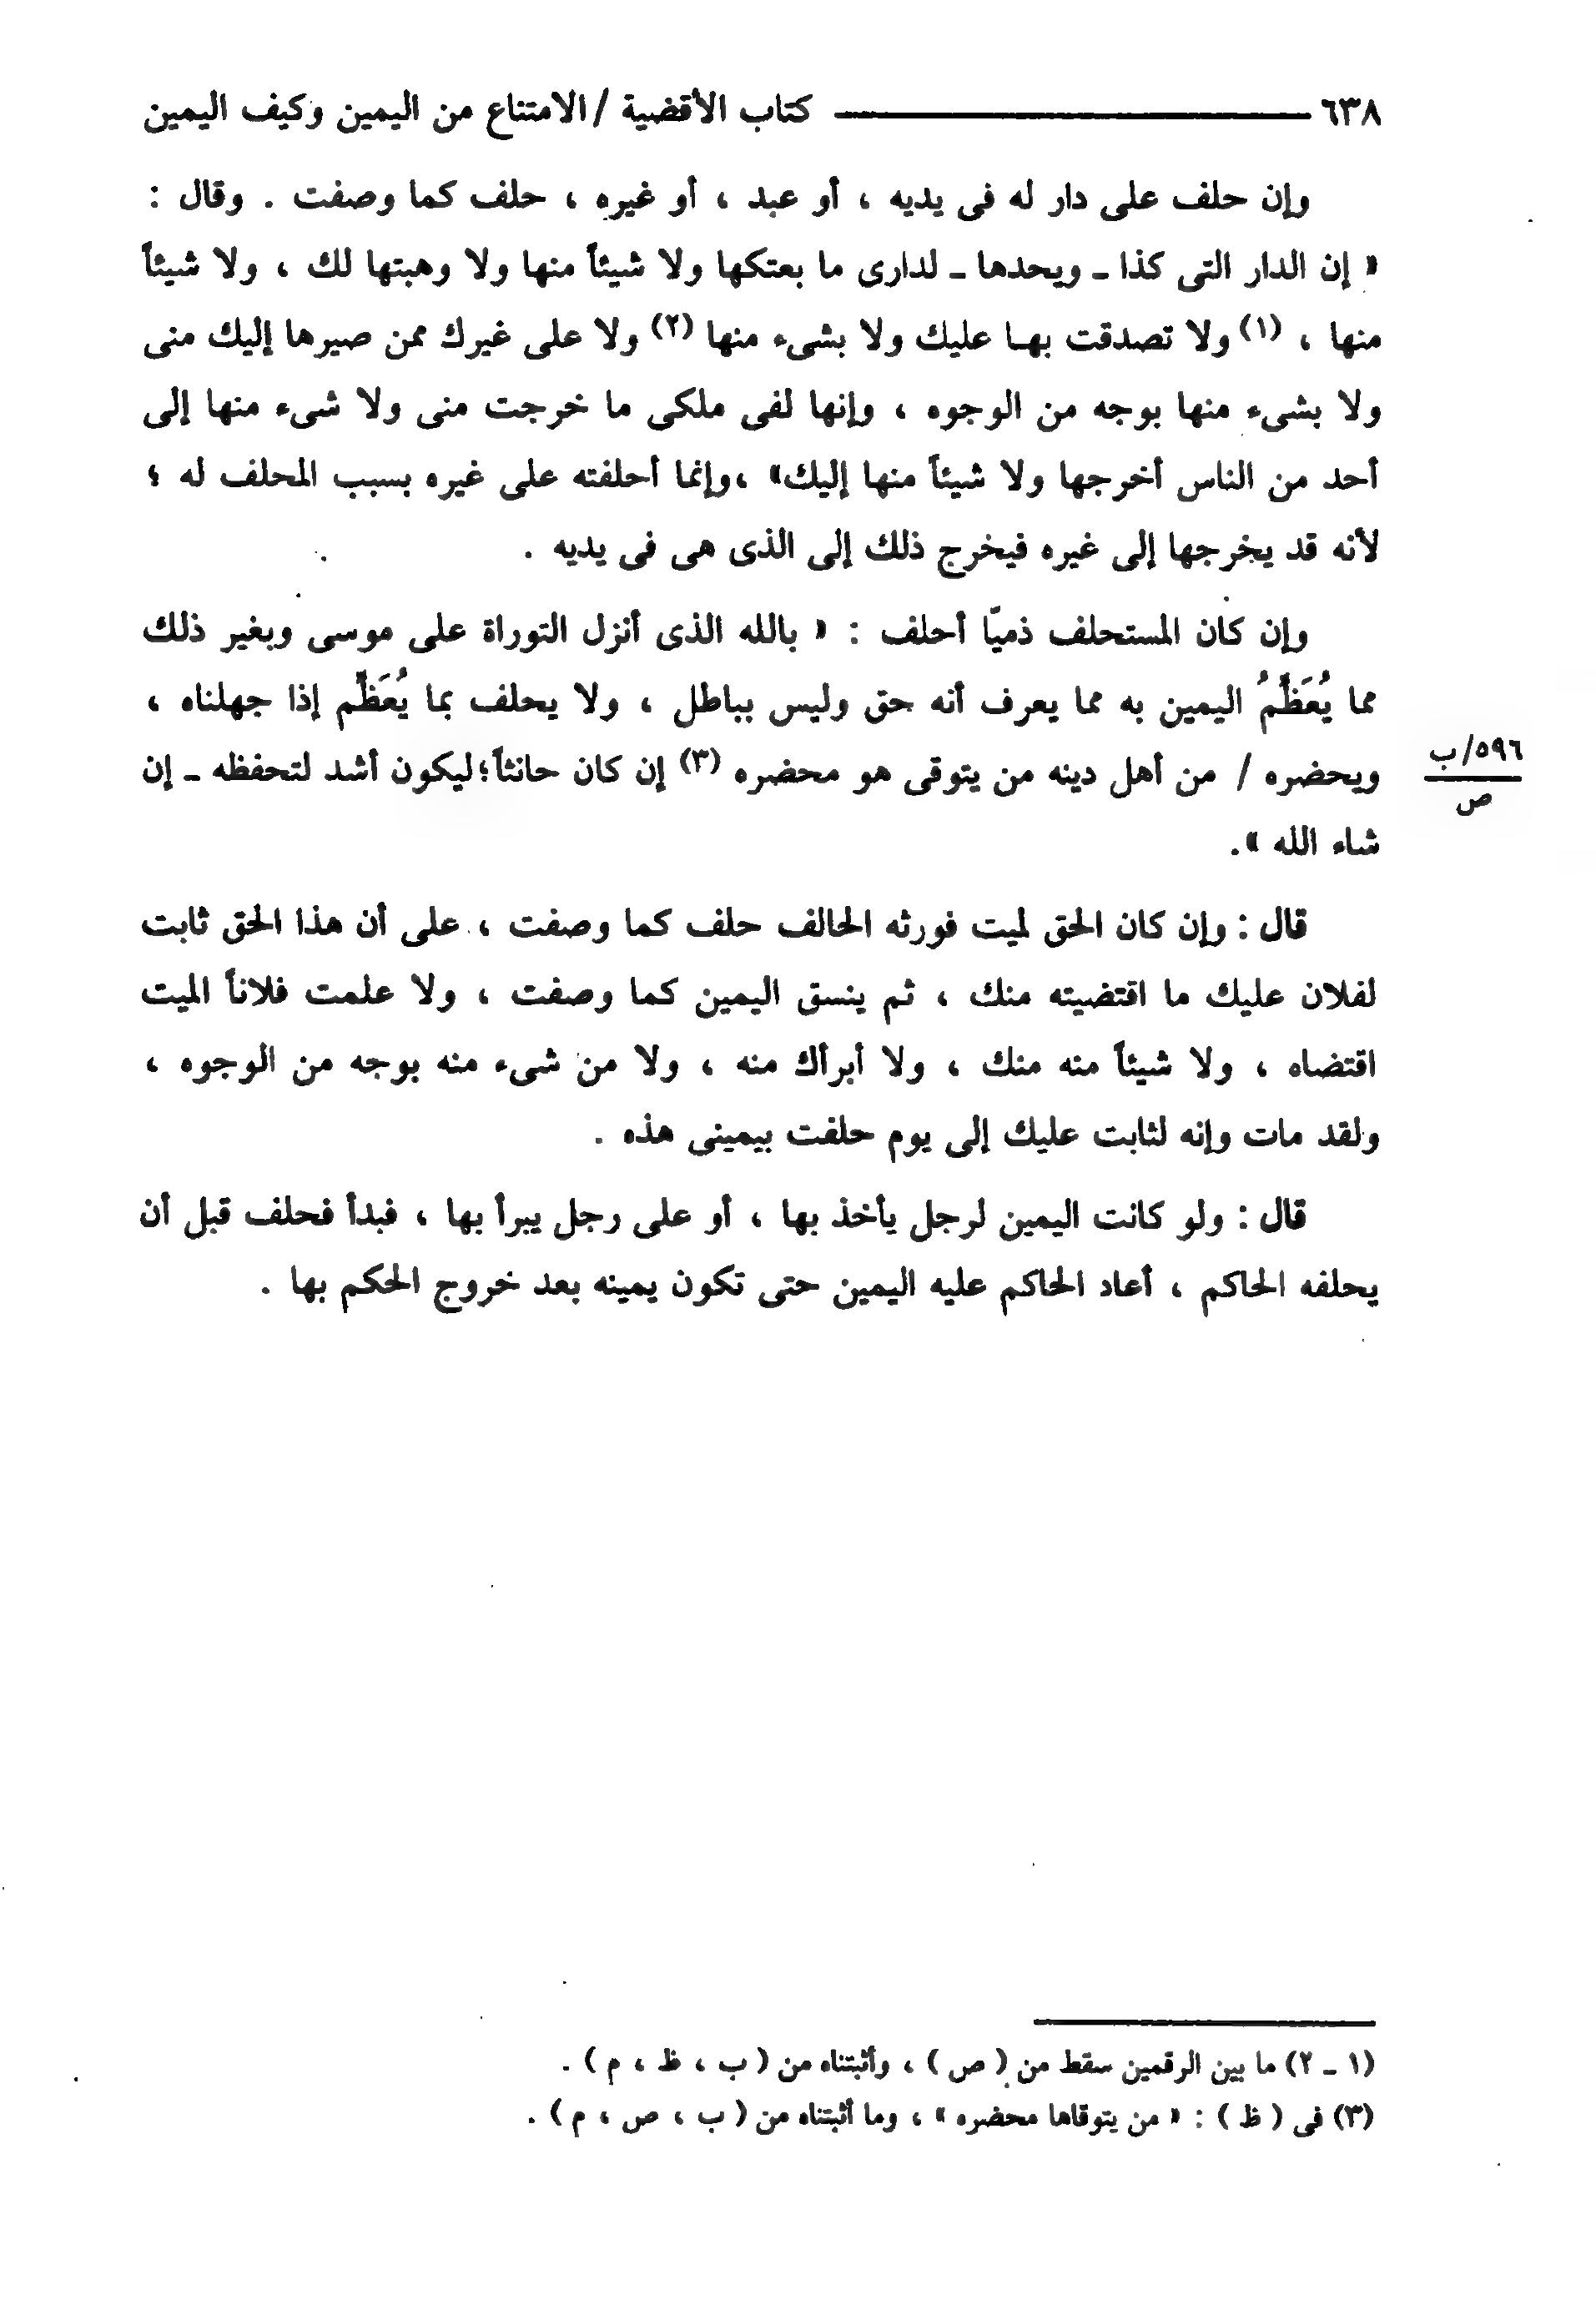 ٦٣٨ كتاب الأقضية / الامتناع من اليمين وكيف اليمين
وإن حلف على دار له فى يديه ، أو عبد ، أو غيره ، حلف كما وصفت . وقال :
« إن الدار التى كذا ـ ويحدها ـ لدارى ما بعتكها ولا شيئاً منها ولا وهبتها لك ، ولا شيئاً
منها ، (١) ولا تصدقت بهـا عليك ولا بشىء منها (٢) ولا على غيرك ممن صيرها إليك منى
ولا بشىء منها بوجه من الوجوه ، وإنها لفى ملكى ما خرجت منى ولا شىء منها إلى
أحد من الناس أخرجها ولا شيئاً منها إليك» ،وإنما أحلفته على غيره بسبب المحلف له ؛
لأنه قد يخرجها إلى غيره فيخرج ذلك إلى الذى هى فى يديه .
وإن كان المستحلف ذميّا أحلف : « بالله الذى أنزل التوراة على موسى وبغير ذلك
مما يُعَظَّمُ اليمين به مما يعرف أنه حق وليس بباطل ، ولا يحلف بما يُعَظَّم إذا جهلناه ،
ويحضره / من أهل دينه من يتوقى هو محضره (٣) إن كان حانثاً؛ليكون أشد لتحفظه ـ إن
٥٩٦/ب
ص
شاء الله ».
قال : وإن كان الحق لميت فورثه الحالف حلف كما وصفت ، على أن هذا الحق ثابت
لفلان عليك ما اقتضيته منك ، ثم ينسق اليمين كما وصفت ، ولا علمت فلاناً الميت
اقتضاه ، ولا شيئاً منه منك ، ولا أبرأك منه ، ولا من شىء منه بوجه من الوجوه ،
ولقد مات وإنه لثابت عليك إلى يوم حلفت بيمينى هذه .
قال : ولو كانت اليمين لرجل يأخذ بها ، أو على رجل يبرأ بها ، فبدأ فحلف قبل أن
يحلفه الحاكم ، أعاد الحاكم عليه اليمين حتى تكون يمينه بعد خروج الحكم بها .
(١ ـ ٢) ما بين الرقمين سقط من ( ص ) ، وأثبتناه من ( ب ، ظ ، م ) .
(٣) فى ( ظ ) : « من يتوقاها محضره » ، وما أثبتناه من ( ب ، ص ، م ) .